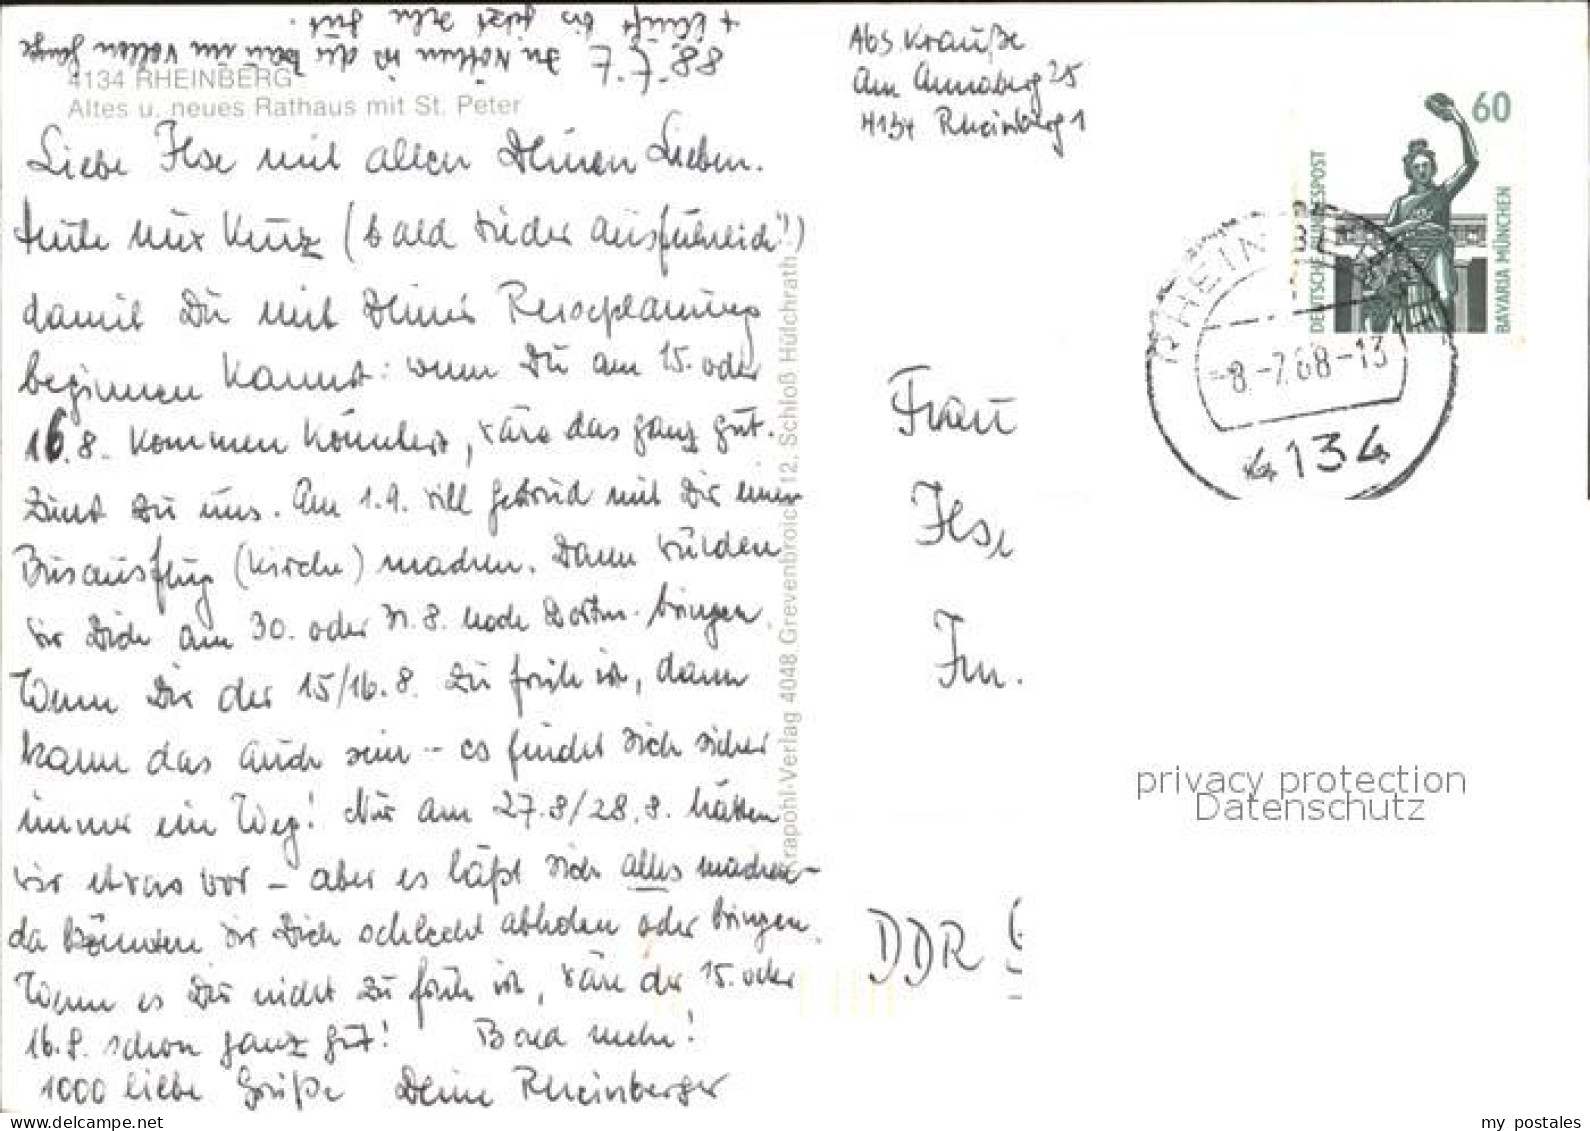 7.7.88 In Xanten ist die Demo im vollen Gange
+ läuft bis jetzt sehr gut.
4134 RHEINBERG
Altes u. neues Rathaus mit St. Peter
Liebe Ilse mit allen Deinen Lieben.
Heute nur kurz (bald wieder ausführlich!)
damit Du mit Deiner Reiseplanung
beginnen kannst: wenn Du am 15. oder
16.8. kommen könntest, wäre das ganz gut.
Zunächst zu uns. Am 1.9. will Gertrud mit Dir einen
Busausflug (Kirche) machen. Dann würden
wir Dich am 30. oder 31.8. nach Dortm. bringen.
Wenn Dir der 15/16.8. zu früh ist, dann
kann das auch sein – es findet sich sicher
immer ein Weg! Nur am 27.8/28.8. hätten
wir etwas vor – aber es läßt sich alles machen –
da könnten wir Dich schlecht abholen oder bringen.
Wenn es Dir nicht zu früh ist, wäre der 15. oder
16.8. schon ganz gut! Bald mehr!
1000 liebe Grüße Deine Rheinberger
Krapohl-Verlag 4048 Grevenbroich 12, Schloß Hülchrath
Abs Krauße
Am Annaberg 25
4134 Rheinberg 1
60
DEUTSCHE BUNDESPOST
BAVARIA MÜNCHEN
RHEINBERG
-8.-7.88-13
4134
Frau
Ilse
DDR
privacy protection
Datenschutz
my postales